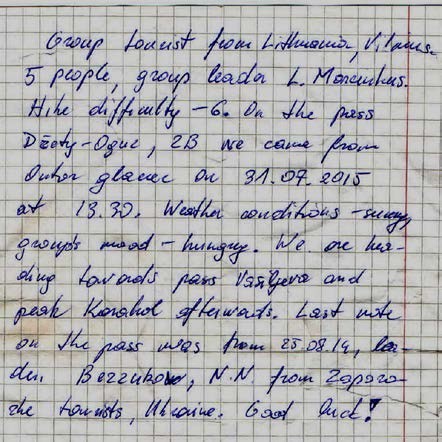 Group tourist from Lithuania, Vilnius.
5 people, group leader L.
Hike difficulty – 6. On the pass
Djety-Oguz, 2B we came from
Ontor glacier on 31.07.2015
at 13.30. Weather conditions – sunny,
group's mood – hungry. We are hea-
ding towards pass Vasiljeva and
peak Karakol afterwards. Last note
on the pass was from 25.08.14, lea-
der, N.N. from Zaporo-
zhe tourists, Ukraine. Good luck!